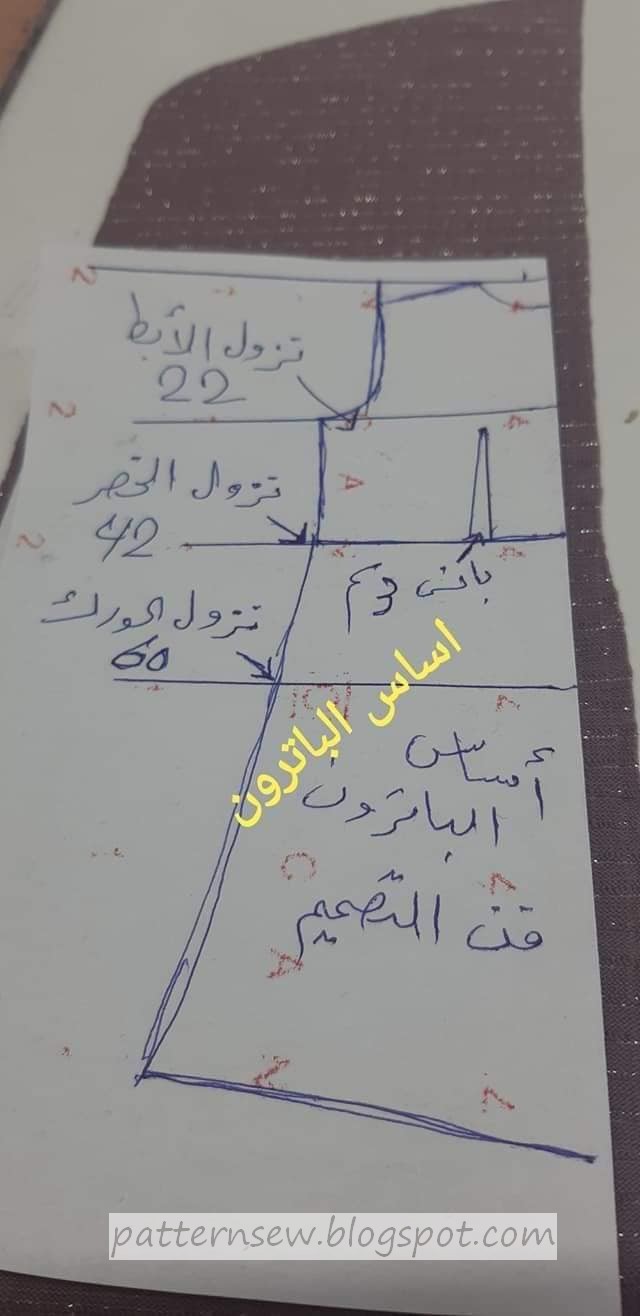 نزول الأبط
22
نزول الخصر
42
بانس 3سم
نزول الورك
60
اساس الباترون
أساس
الباترون
فن التصميم
patternsew.blogspot.com